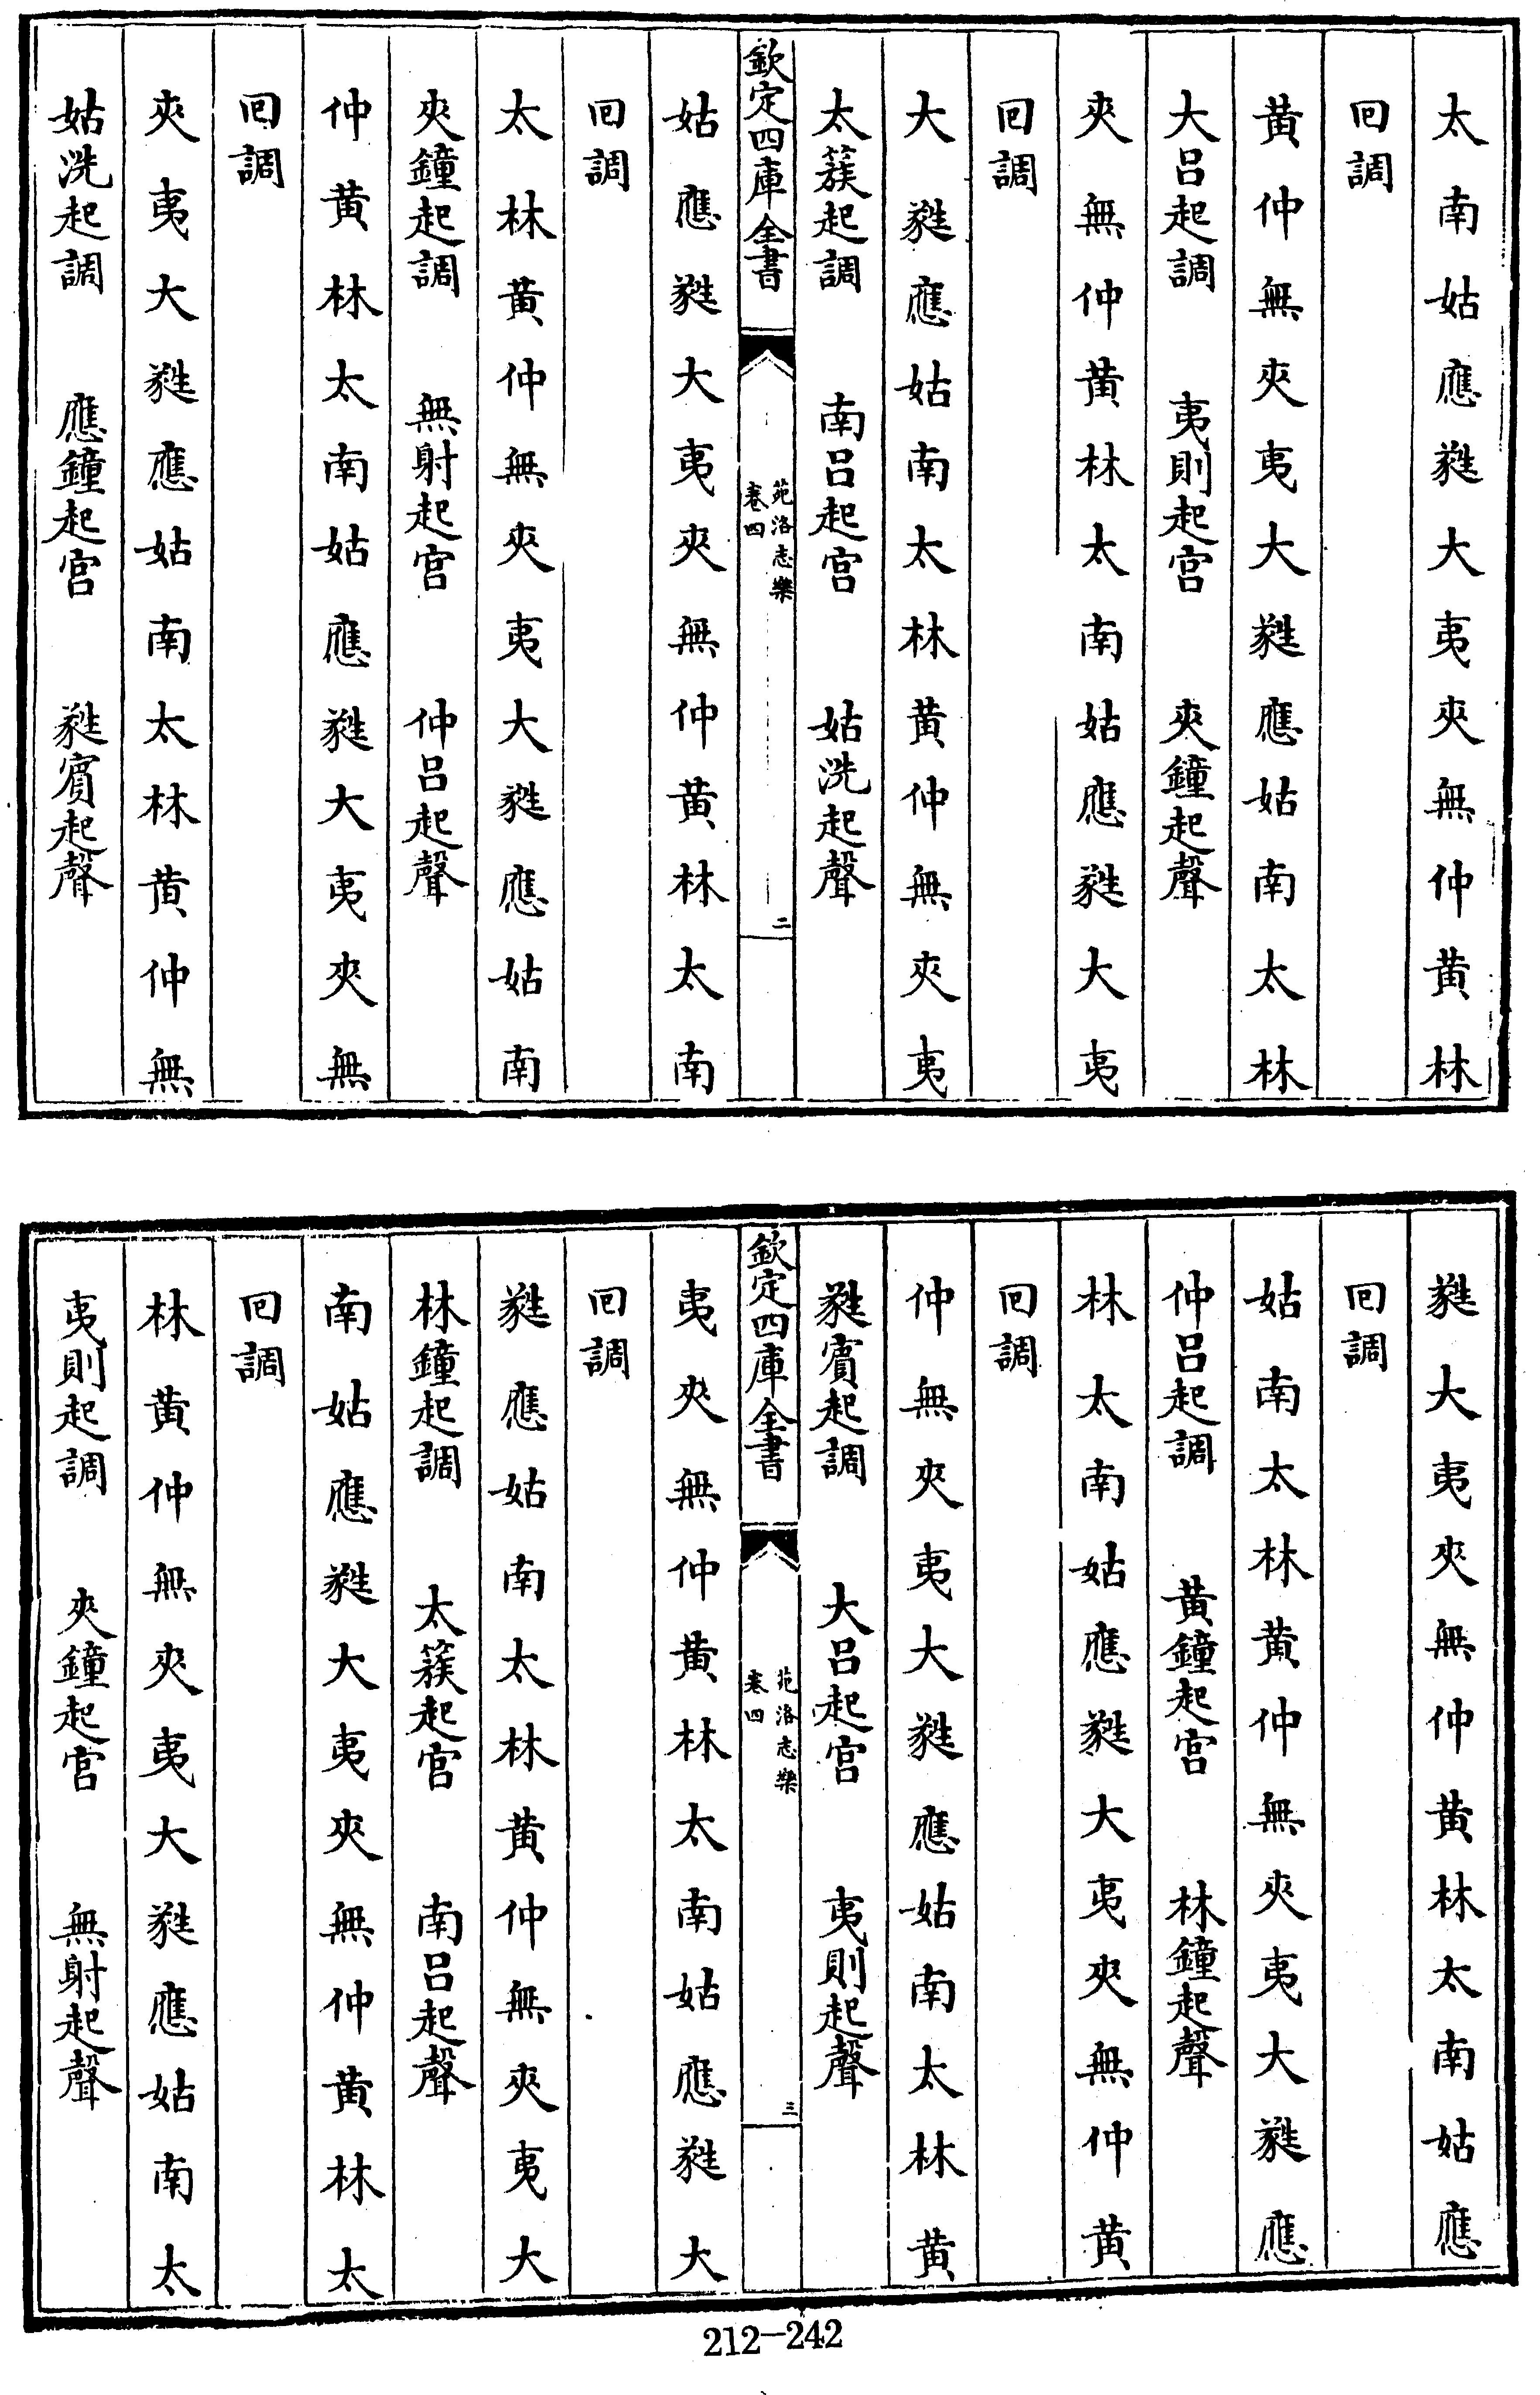 太南姑應蕤大夷夾無仲黃林
回調
黃仲無夾夷大蕤應姑南太林
大呂起調　夷則起宮　夾鐘起聲
夾無仲黃林太南姑應蕤大夷
回調
大蕤應姑南太林黃仲無夾夷
太簇起調　南呂起宮　姑洗起聲
欽定四庫全書
苑洛志樂
卷四
二
姑應蕤大夷夾無仲黃林太南
回調
太林黃仲無夾夷大蕤應姑南
夾鐘起調　無射起宮　仲呂起聲
仲黃林太南姑應蕤大夷夾無
回調
夾夷大蕤應姑南太林黃仲無
姑洗起調　應鐘起宮　蕤賓起聲
蕤大夷夾無仲黃林太南姑應
回調
姑南太林黃仲無夾夷大蕤應
仲呂起調　黃鐘起宮　林鐘起聲
林太南姑應蕤大夷夾無仲黃
回調
仲無夾夷大蕤應姑南太林黃
蕤賓起調　大呂起宮　夷則起聲
欽定四庫全書
苑洛志樂
卷四
三
夷夾無仲黃林太南姑應蕤大
回調
蕤應姑南太林黃仲無夾夷大
林鐘起調　太簇起宮　南呂起聲
南姑應蕤大夷夾無仲黃林太
回調
林黃仲無夾夷大蕤應姑南太
夷則起調　夾鐘起宮　無射起聲
212-242